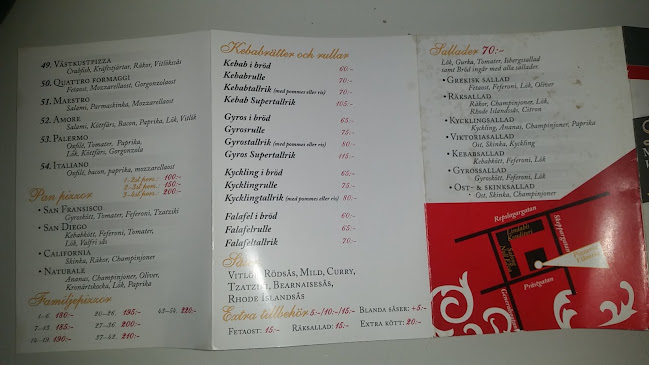 49. Västkustpizza
Crabfish, Kräftstjärtar, Räkor, Vitlöksås
50. Quattro formaggi
Fetaost, Mozzarellaost, Gorgonzolaost
51. Maestro
Salami, Parmaskinka, Mozzarellaost
52. Amore
Salami, Köttfärs, Bacon, Paprika, Lök, Vitlök
53. Palermo
Oxfilé, Tomater, Paprika,
Lök, Köttfärs, Gorgonzola
54. Italiano
Oxfilé, bacon, paprika, mozzarellaost
Pan pizzor
1-2st pers.: 100:-
2-3st pers.: 150:-
3-4st pers.: 200:-
• San Fransisco
Gyroskött, Tomater, Feferoni, Tzatziki
• San Diego
Kebabkött, Feferoni, Tomater,
Lök, Valfri sås
• California
Skinka, Räkor, Champinjoner
• Naturale
Ananas, Champinjoner, Oliver,
Kronärtskocka, Lök, Paprika
Familjepizzor
1-6 180:- 20-26 195:- 43-54 220:-
7-13 185:- 27-36 200:-
14-19 190:- 37-42 210:-
Kebabrätter och rullar
Kebab i bröd 60:-
Kebabrulle 70:-
Kebabtallrik (med pommes eller ris) 70:-
Kebab Supertallrik 105:-
Gyros i bröd 65:-
Gyrosrulle 75:-
Gyrostallrik (med pommes eller ris) 80:-
Gyros Supertallrik 115:-
Kyckling i bröd 65:-
Kycklingrulle 75:-
Kycklingtallrik (med pommes eller ris) 80:-
Falafel i bröd 60:-
Falafelrulle 65:-
Falafeltallrik 70:-
Vitlök, Rödsås, Mild, Curry,
Tzatziki, Bearnaisesås,
Rhode Islandsås
Extra tillbehör 5:-/10:-/15:- Blanda såser: +5:-
Fetaost: 15:- Räksallad: 15:- Extra kött: 20:-
Sallader 70:-
Lök, Gurka, Tomater, Isbergssallad
samt Bröd ingår med alla sallader.
• Grekisk sallad
Fetaost, Feferoni, Lök, Oliver
• Räksallad
Räkor, Champinjoner, Lök,
Rhode Islandsås, Citron
• Kycklingsallad
Kyckling, Ananas, Champinjoner, Paprika
• Viktoriasallad
Ost, Skinka, Kyckling
• Kebabsallad
Kebabkött, Feferoni, Lök
• Gyrossallad
Gyroskött, Feferoni, Lök
• Ost- & skinksallad
• Ost, Skinka, Champinjoner
Repslagargatan
Skeppargatan
Prästgatan